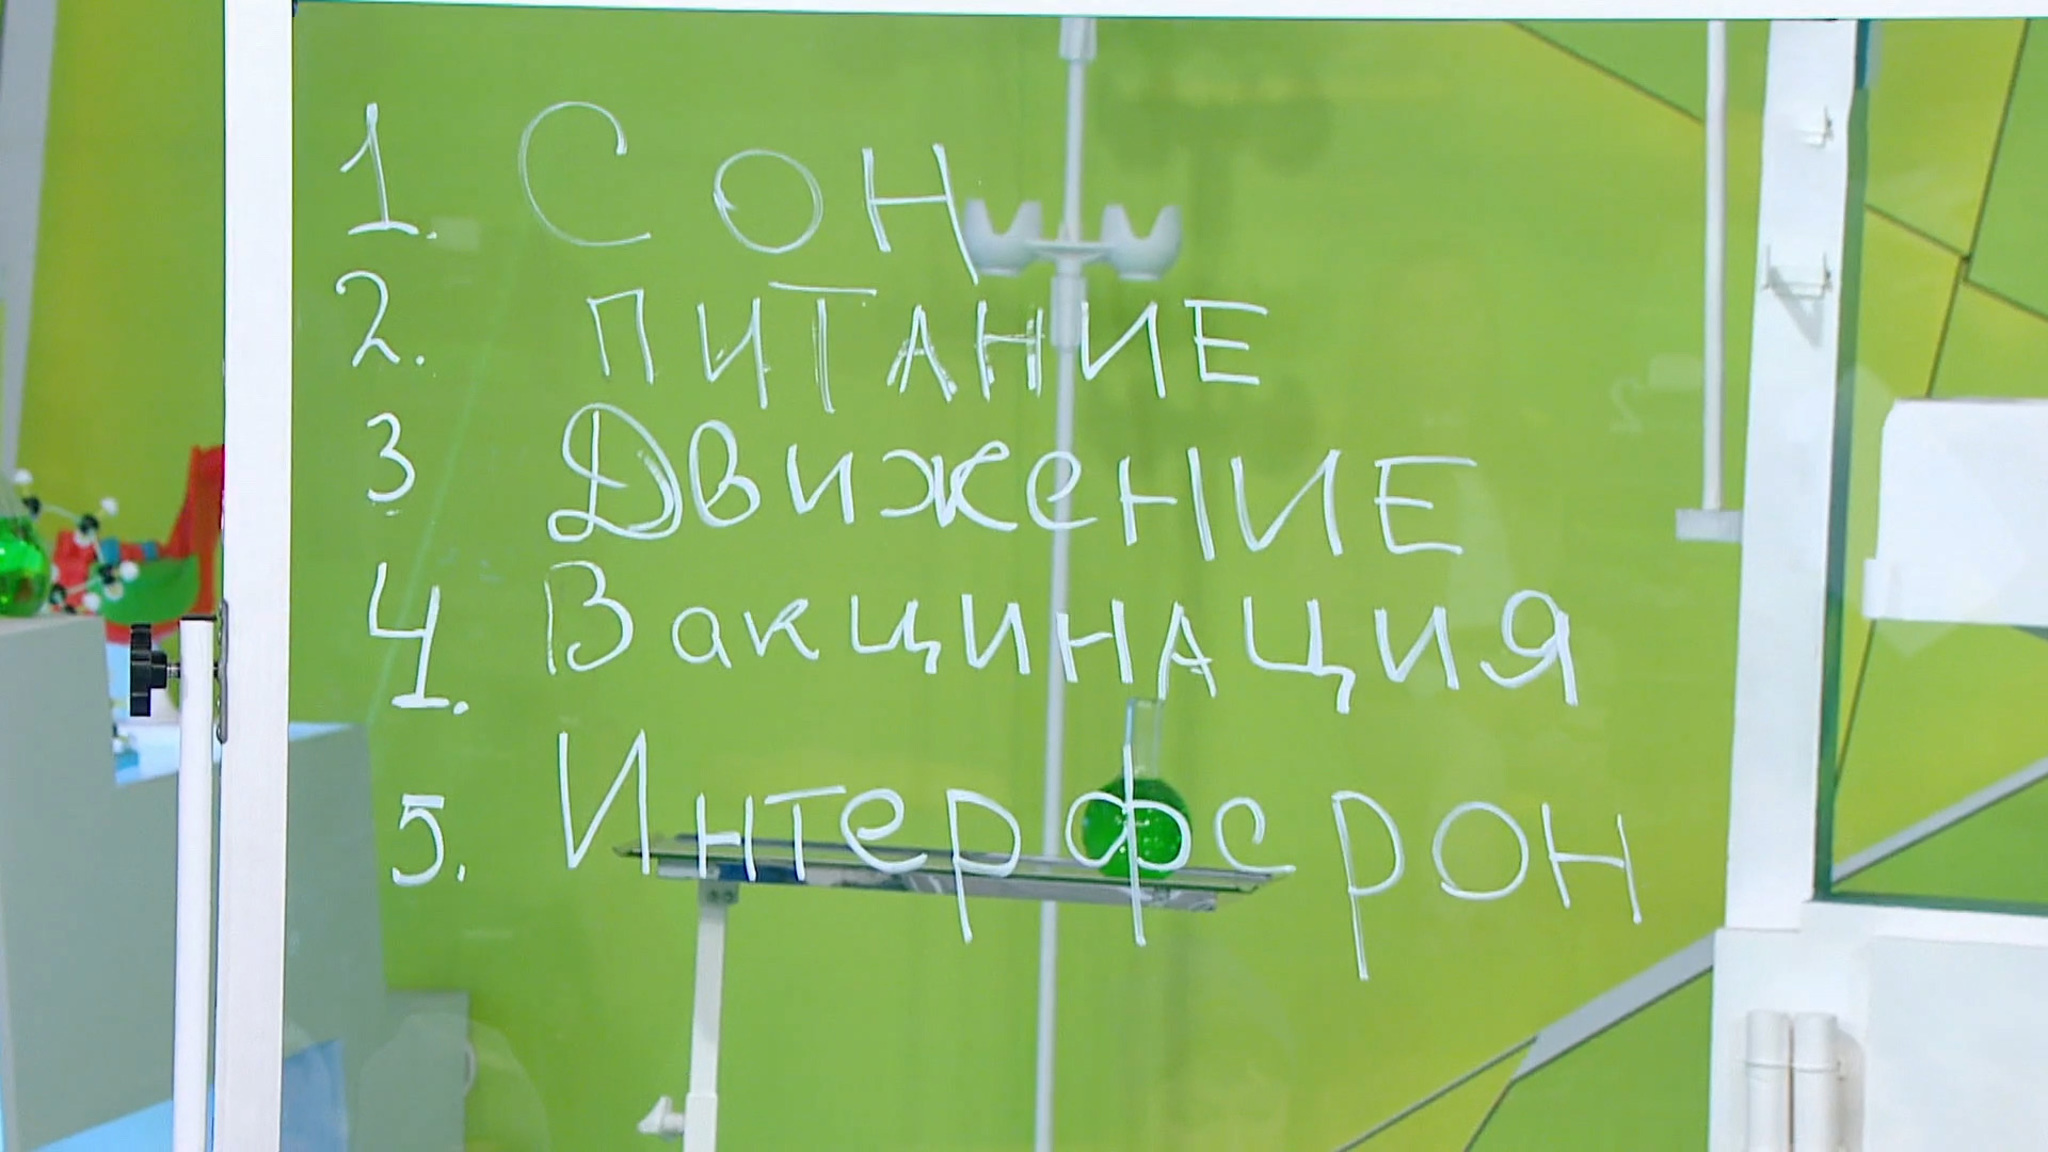 1. Сон
2. ПИТАНИЕ
3 ДвижеНИЕ
4. ВакциНАЦИЯ
5. Интерферон